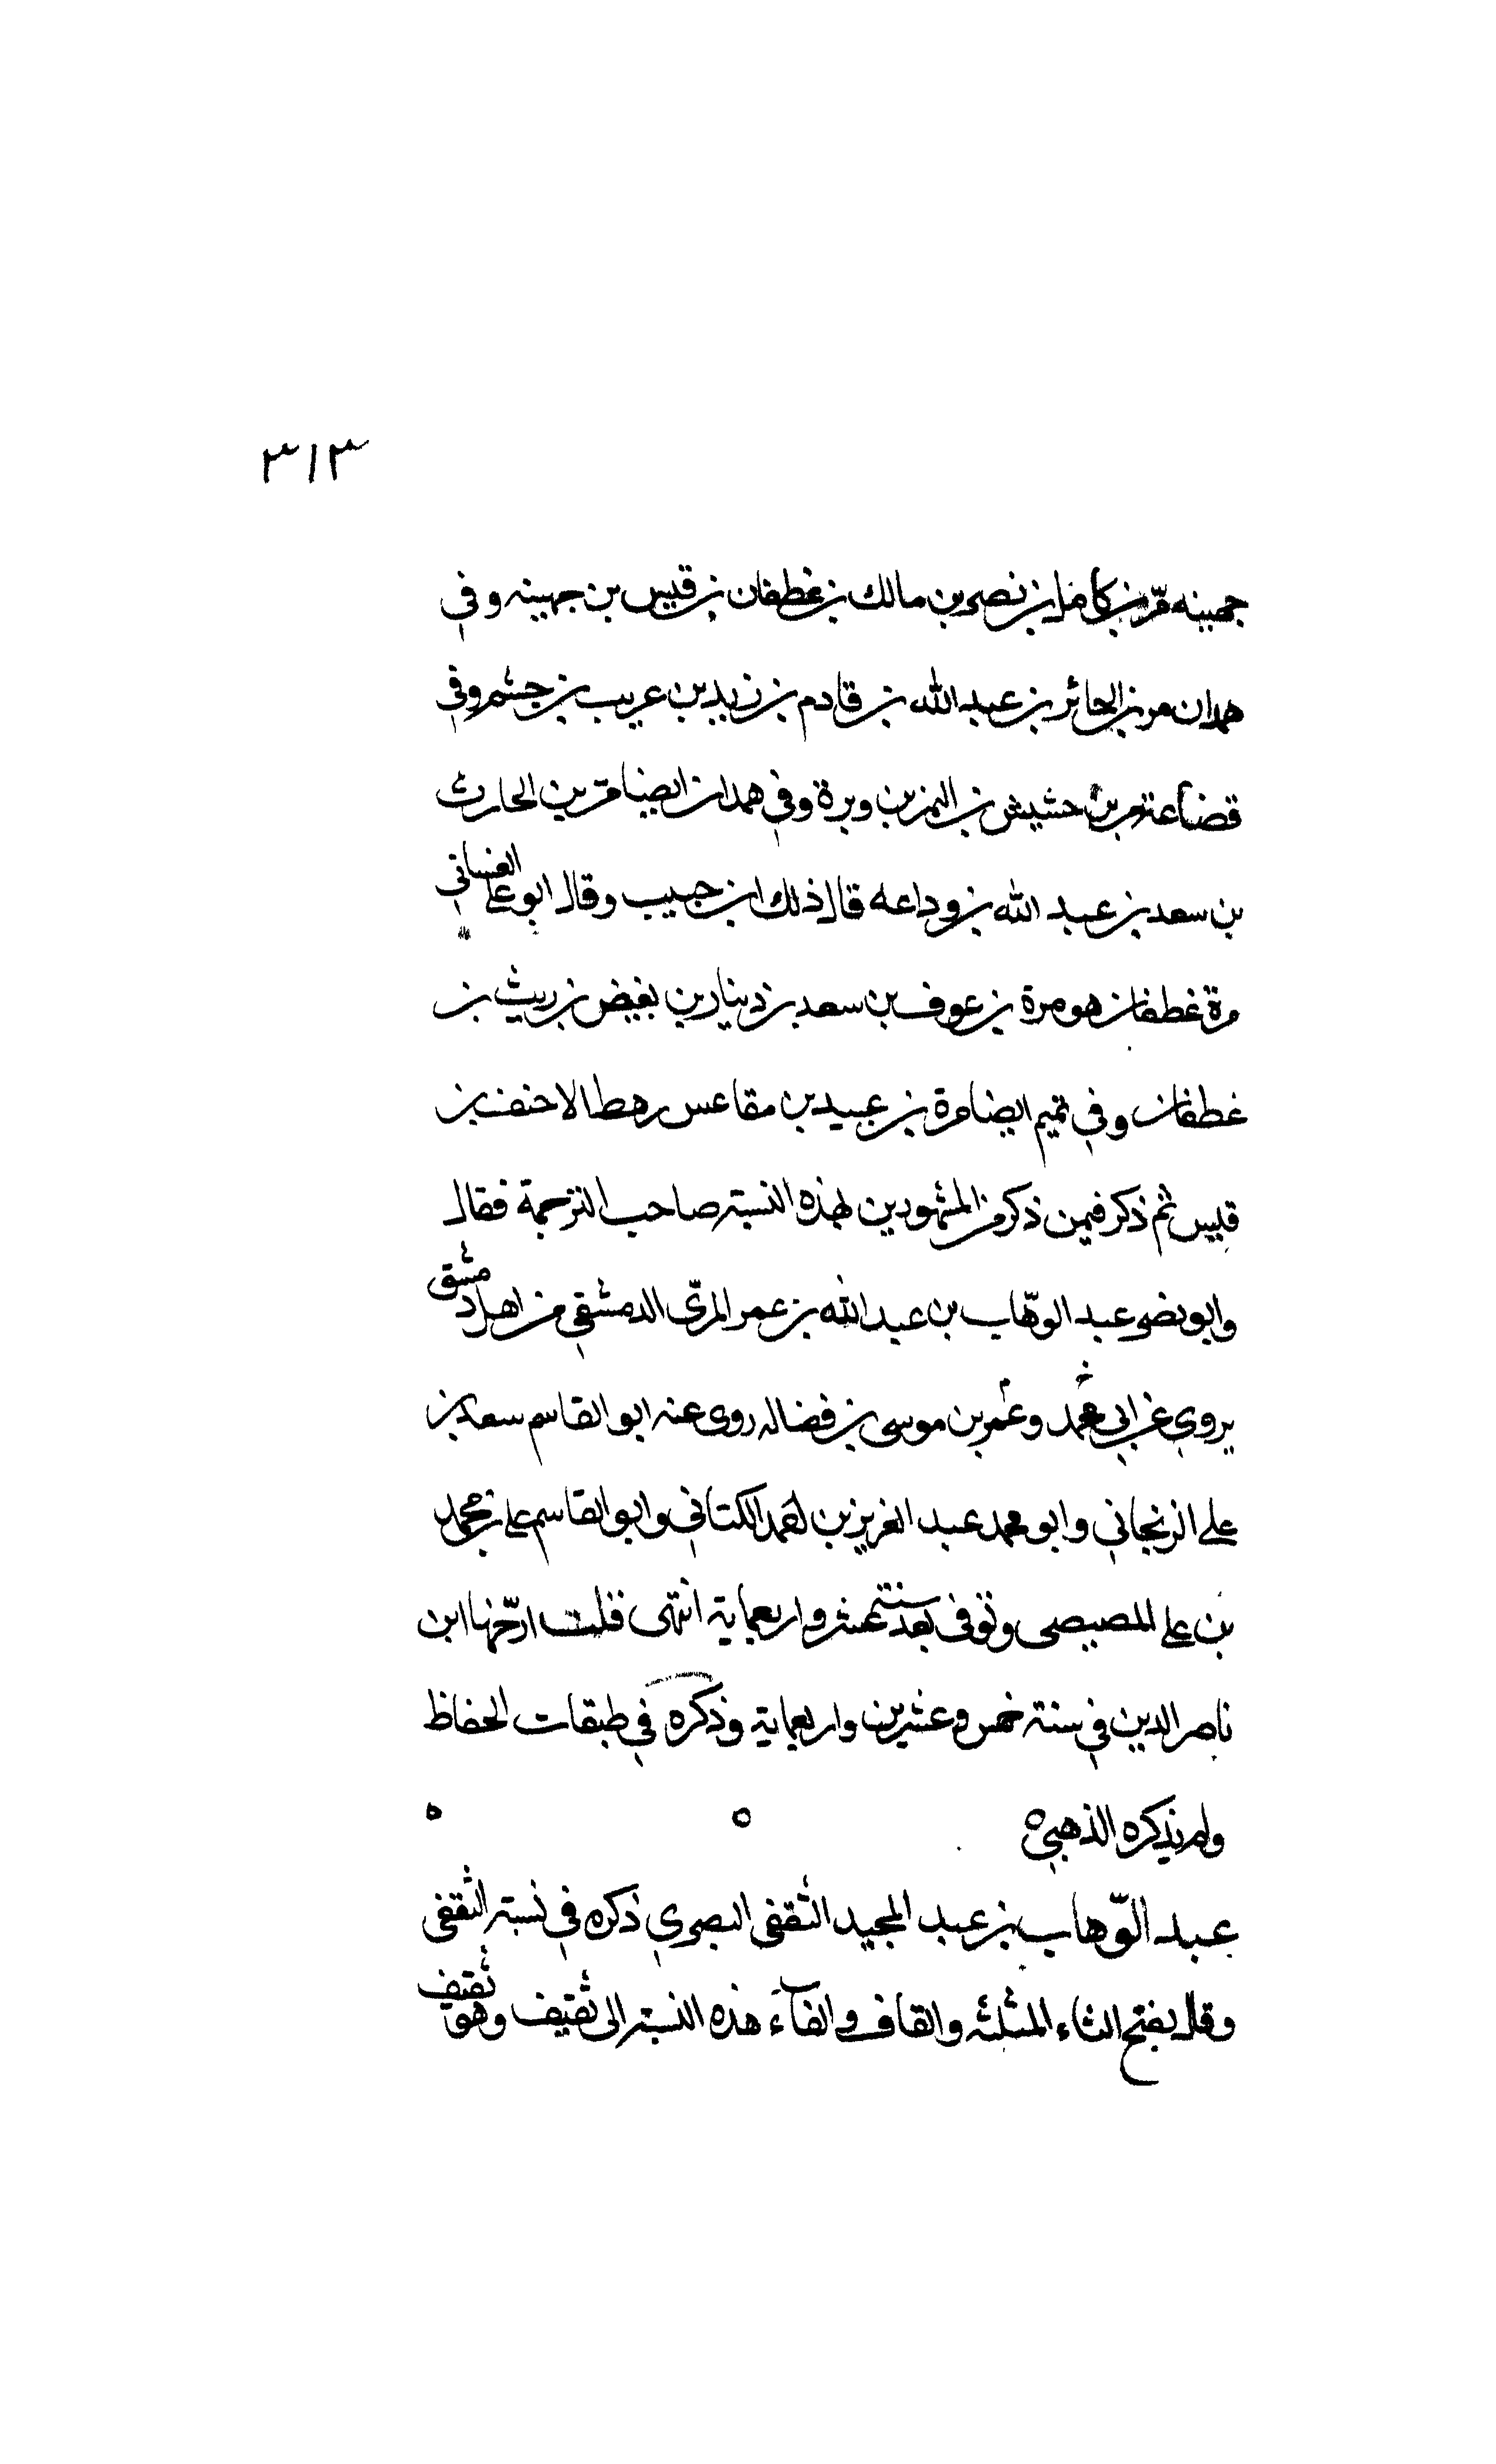 ٣١٣
جهينه مرّ بن كامل بن نصر بن مالك بن غطفان بن قيس بن جهينه وفي
همدان مر بن الحائر بن عبد الله بن قادم بن زيد بن عريب بن جشم وفي
قضاعة مر بن حشيش بن النمر بن وبرة وفي همدان ايضا مرّ بن الحارث
بن سعد بن عبد الله بن وداعه قال ذلك ابن حبيب وقال ابو على الغساني
مرة غطفان هو مرة بن عوف بن سعد بن دينار بن بغيض بن ريث بن
غطفان وفي تميم ايضا مرة بن عبيد بن مقاعس رهط الاحنف بن
قيس ثم ذكر فيمن ذكر من المشهورين بهذه النسبة صاحب الترجمة فقال
وابو نصر عبد الوهّاب بن عبد الله بن عمر المرّى الدمشقي من اهل دمشق
يروي عن ابي محمد وعمر بن موسى بن فضاله روى عنه ابو القاسم سعد بن
علي الزنجاني وابو محمد عبد العزيز بن احمد الكتاني وابو القاسم على بن محمد
بن على المصيصى وتوفى بعد سنة عشر واربعماية انتهى قلت ارّخها ابن
ناصر الدين في سنة خمس وعشرين واربعماية وذكره في طبقات الحفاظ
ولم يذكره الذهبي ه ه ه
عبد الوّهاب بن عبد المجيد الثقفى البصري ذكره في نسبة الثقفى
وقال بفتح الثاء المثلثه والقاف والفآء هذه النسبة الى ثقيف وهو ثقيف